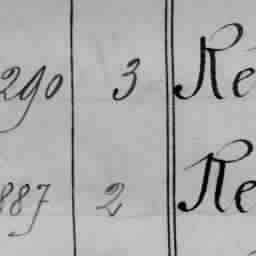 290 3 Re
887 2 Re